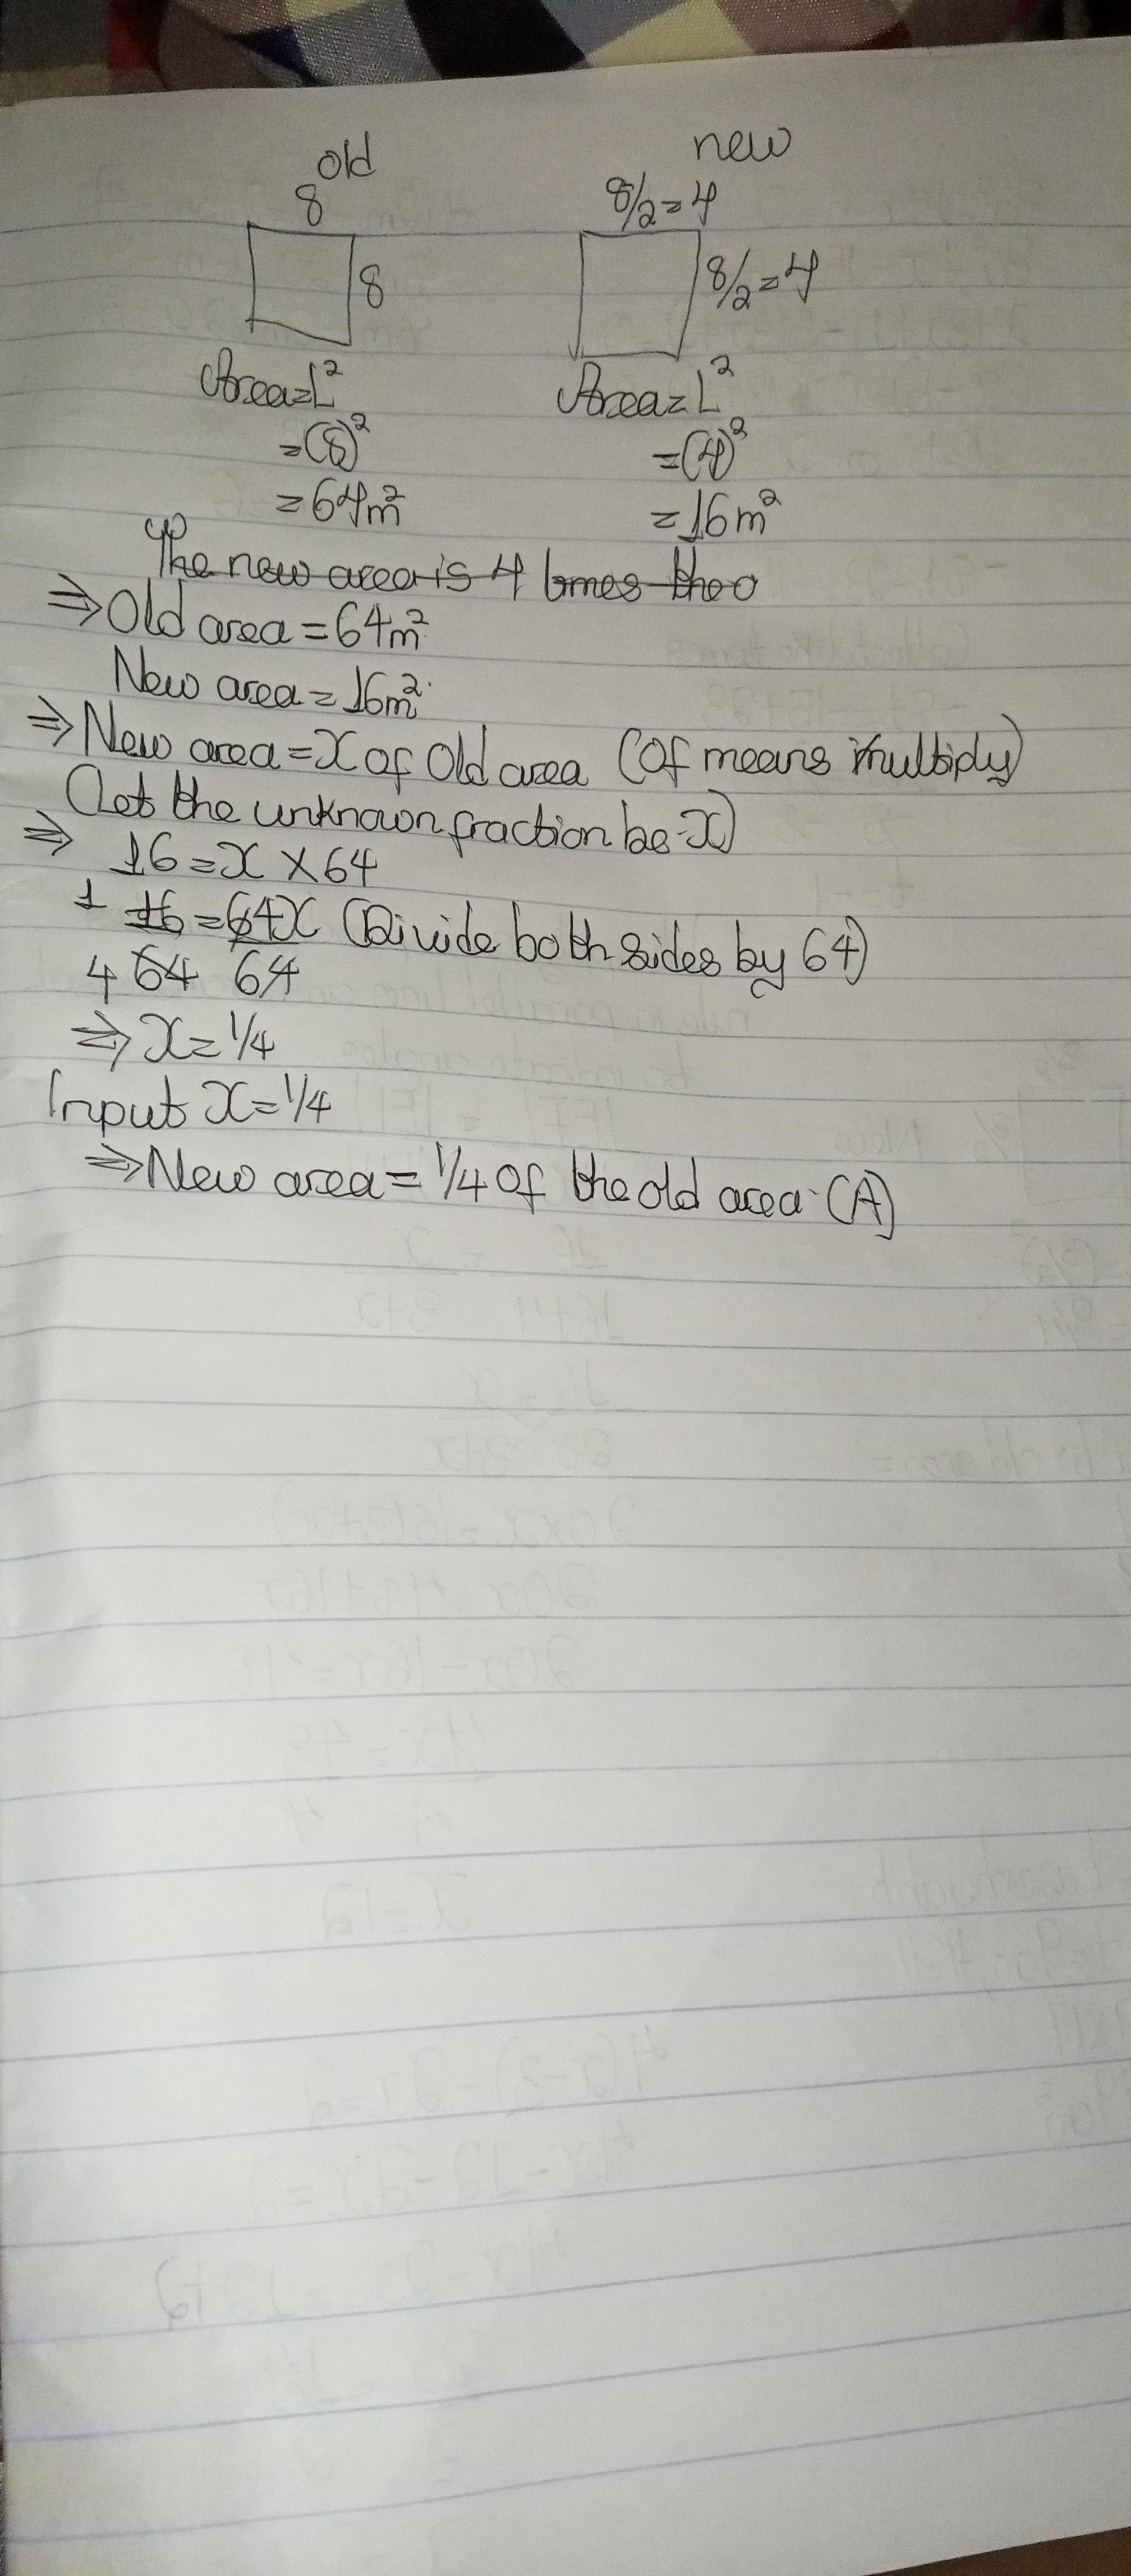 old
new
8
8/2=4
8
8/2=4
Area=L²
Area=L²
=(8)²
=(4)²
=64m²
=16m²
The new area is 4 times the o
⇒Old area=64m²
New area=16m²
⇒New area=x of Old area (Of means multiply)
(Let the unknown fraction be x)
⇒ 16=x×64
1 16=64x (Divide both sides by 64)
4 64 64
⇒x=1/4
Input x=1/4
⇒New area=1/4 of the old area (A)